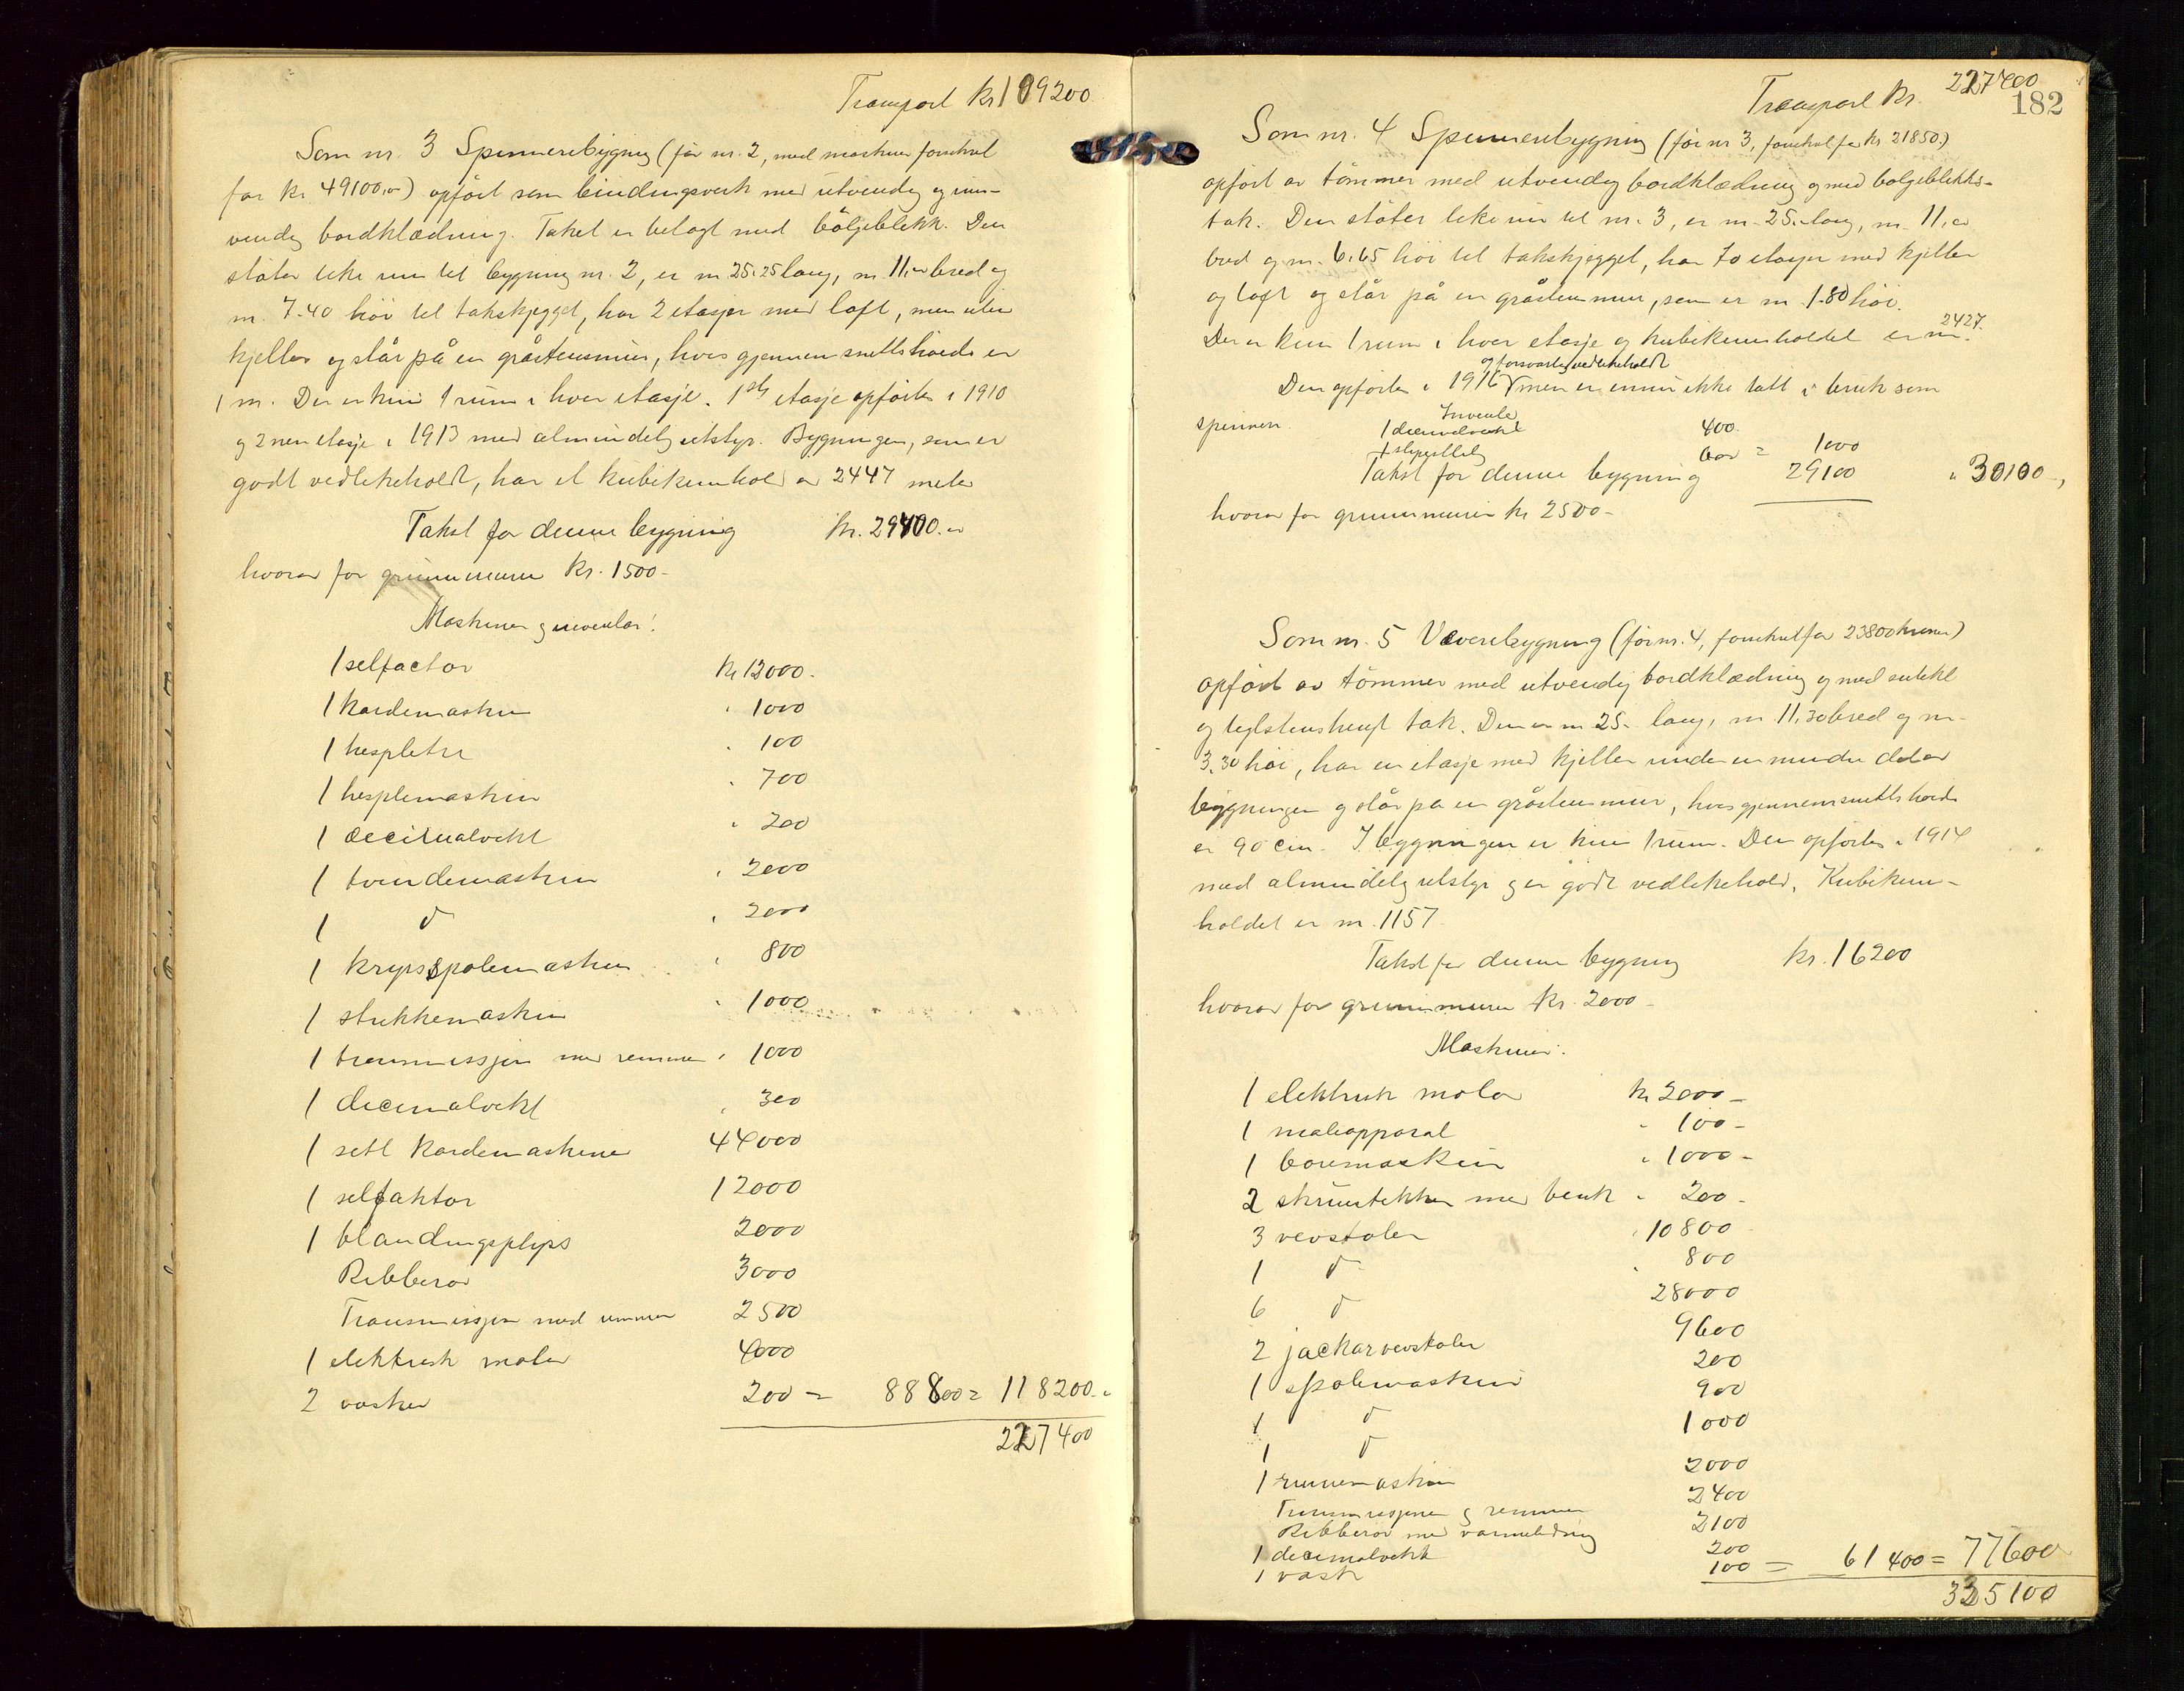 Transport kr 109200
Som nr. 3 Spinneribygning (för nr. 2, med maskiner forsikret
for kr. 49100,00) opfört som bindingsverk med utvendig og inn-
vendig bordklædning. Taket er belagt med bölgeblekk. Den
støter like inn til bygning nr. 2, er m 25.25 lang, m. 11,00 bred og
m. 7.40 höi til takskjegget, har 2 etasjer med loft, men uten
kjeller og står på en gråstensmur, hvis gjennemsnittshøide er
1 m. Der er kun 1 rum i hver etasje. 1ste etasje opförtes i 1910
og 2nen etasje i 1913 med almindelig utstyr. Bygningen, som er
godt vedlikeholdt, har et kubikinnhold av 2447 meter
Takst for denne bygning kr. 29400.00
hvorav for grunnmuren kr. 1500-
Maskiner og inventar:
1 selfactor kr 12000.
1 kardemaskin " 1000
1 hespletre " 100
1 hesplemaskin " 700
1 decimalvekt " 200
1 tvindemaskin " 2000
1 do " 2000
1 kryssspolemaskin " 800
1 strikkemaskin " 1000
1 transmissjon med remmer " 1000
1 decimalvekt " 300
1 sett kardemaskiner 44000
1 selfaktor 12000
1 blandings 2000
Ribberör 3000
Transmissjon med remmer 2500
1 elektrisk motor 4000
2 vasker 200 = 88800 = 118200.-
227400
Transport kr. 227400
182
Som nr. 4 Spinneribygning (för nr 3, forsikret for kr 21850.)
opfört av tömmer med utvendig bordklædning og med bølgeblikks-
tak. Den støter like inn til nr. 3, er m. 25.- lang, m. 11,00
bred og m. 6.65 höi til takskjegget, har to etasjer med kjeller
og loft og står på en gråstensmur, som er m. 1.80 höi.
Der er kun 1 rum i hver etasje og kubikinnholdet er m. 2427.
og forsvarlig vedlikeholdt
Den opførtes i 1916 men er ennu ikke tatt i bruk som
spinneri.
Inventar
1 decimalvekt 400
1 600 = 1000
Takst for denne bygning 29100 " 30100-,
hvorav for grunnmuren kr 2500-
Som nr. 5 Væveribygning (för nr. 4, forsikret for 23800 kroner)
opfört av tömmer med utvendig bordklædning og med
og teglstenshengt tak. Den er m 25.- lang, m. 11,30 bred og m.
3.30 höi, har en etasje med kjeller under en mindre del av
bygningen og står på en gråstensmur, hvis gjennemsnittshøide
er 90 cm. I bygningen er kun 1 rum. Den opførtes i 1914
med almindelig utstyr og er godt vedlikehold. Kubikinn-
holdet er m. 1157
Takst for denne bygning kr. 16200
hvorav for grunnmuren kr. 2000-
Maskiner:
1 elektrisk motor kr 2000-
1 maleapparat " 100-
1 boremaskin " 1000-
2 skruestikker med benk " 200-
3 vevstoler " 10800
1 do " 800
6 do 28000
2 jackarvevstoler 9600
1 spolemaskin 200
1 do 900
1 do 1000
1 rennemaskin 2000
Transmissjoner og remmer 2400
Ribberör med varmeledning 2100
1 decimalvekt 200
1 vask 100 = 61400 = 77600
335100